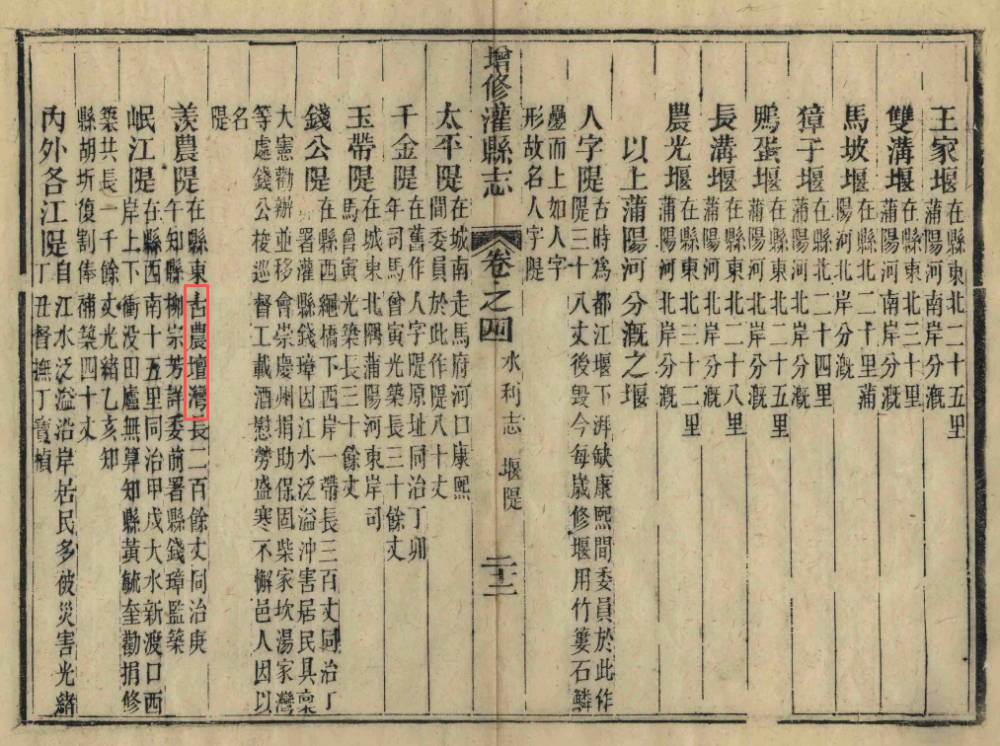 王家堰在縣東北二十五里
蒲陽河南岸分溉
雙溝堰在縣東北三十里
蒲陽河南岸分溉
馬坡堰在縣東北二十里蒲
陽河北岸分溉
獐子堰在縣東北二十四里
蒲陽河北岸分溉
鴨蛋堰在縣東北二十五里
蒲陽河北岸分溉
長溝堰在縣東北二十八里
蒲陽河北岸分溉
農光堰在縣東北三十二里
蒲陽河北岸分溉
以上蒲陽河分溉之堰
人字隄古時為都江堰下湃缺康熙間委員於此作
隄三十八丈後毀今每歲修堰用竹簍石鱗
壘而上如人字
形故名人字隄
增修灌縣志
卷之四
水利志
堰隄
二十二
太平隄在城南走馬府河口康熙
間委員於此作隄八十丈
千金隄在舊作人字隄原址同治丁卯
年司馬曾寅光築長三十餘丈
玉帶隄在城東北隅蒲陽河東岸司
馬曾寅光築長三十餘丈
錢公隄在縣西繩橋下西岸一帶長三百丈同治丁
署灌縣錢璋因江水泛溢沖害居民具稟
大憲勸辦並移會崇慶州捐助保固柴家坎湯家灣
等處錢公梭巡督工載酒慰勞盛寒不懈邑人因以
名
隄
羨農隄在縣東古農壇灣長二百餘丈同治庚
午知縣柳宗芳詳委前署縣錢璋監築
岷江隄在縣西南十五里同治甲戌大水新渡口西
岸上下衝没田廬無算知縣黃毓奎勸捐修
築共長一千餘丈光緒乙亥知
縣胡圻復割俸補築四十丈
內外各江隄自江水泛溢沿岸居民多被災害光緒
丁丑督撫丁寶楨